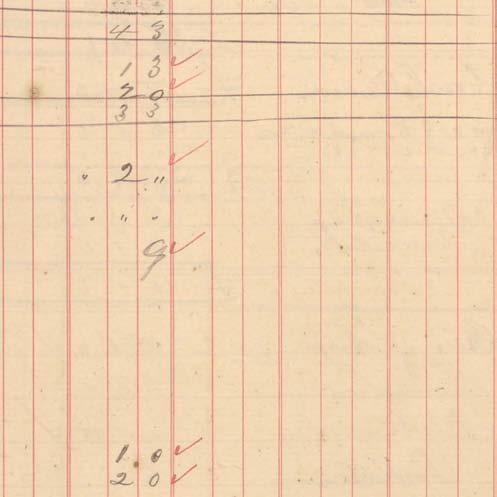 4 3
1 3 ✓
7 0 ✓
3 3
" 2 " ✓
" " "
9 ✓
1 0 ✓
2 0 ✓